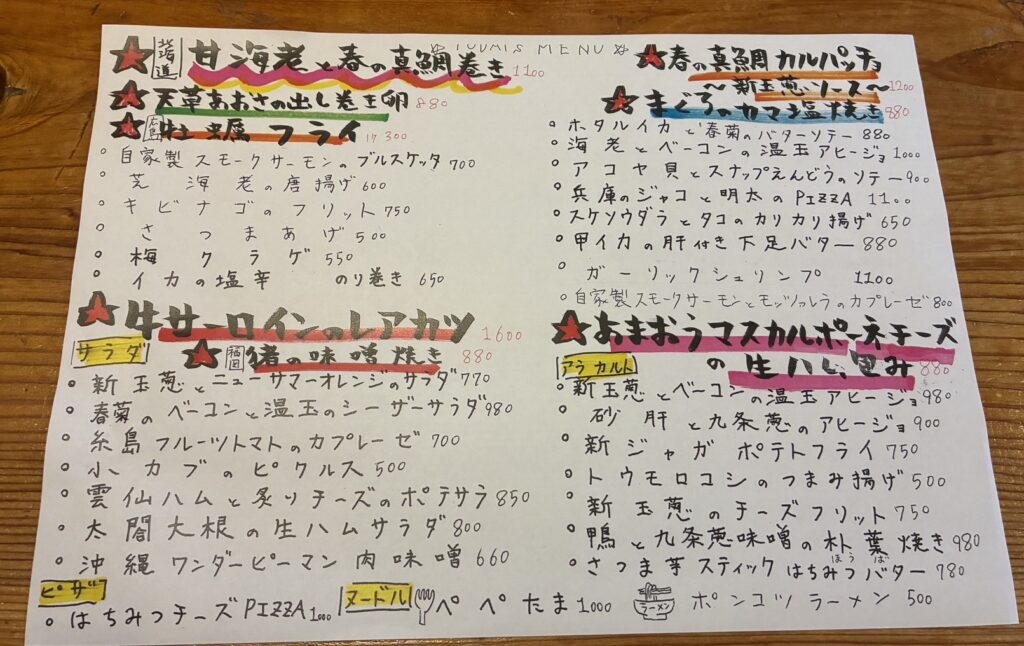 MENU
北海道 甘海老と春の真鯛巻き 1100
天草あおさの出し巻き卵 880
広島 牡蠣フライ 1ケ 300
・自家製スモークサーモンのブルスケッタ 700
・芝海老の唐揚げ 600
・キビナゴのフリット 750
・さつまあげ 500
・梅クラゲ 550
・イカの塩辛 のり巻き 650
牛サーロインのレアカツ 1600
サラダ
福岡 の味噌焼き 880
・新玉葱とニューサマーオレンジのサラダ 770
・春菊のベーコンと温玉のシーザーサラダ 980
・糸島フルーツトマトのカプレーゼ 700
・小カブのピクルス 500
・雲仙ハムと炙りチーズのポテサラ 850
・太閤大根の生ハムサラダ 800
・沖縄ワンダーピーマン肉味噌 660
ピザ
・はちみつチーズPIZZA 1000
ヌードル
ペペたま 1000
春の真鯛カルパッチョ
〜新玉葱ソース〜 1200
まぐろのカマ塩焼き 880
・ホタルイカと春菊のバターソテー 880
・海老とベーコンの温玉アヒージョ 1000
・アコヤ貝とスナップえんどうのソテー 900
・兵庫のジャコと明太のPIZZA 1100
・スケソウダラとタコのカリカリ揚げ 650
・甲イカの肝付き下足バター 880
・ガーリックシュリンプ 1100
・自家製スモークサーモンとモッツァレラのカプレーゼ 800
あまおうマスカルポーネチーズ
の生ハム包み 880
アラカルト
・新玉葱とベーコンの温玉アヒージョ 980
・砂肝と九条葱のアヒージョ 900
・新ジャガポテトフライ 750
・トウモロコシのつまみ揚げ 500
・新玉葱のチーズフリット 750
・鴨と九条葱味噌の朴葉焼き 980
ほうば
・さつま芋スティックはちみつバター 780
ラーメン
ポンコツラーメン 500